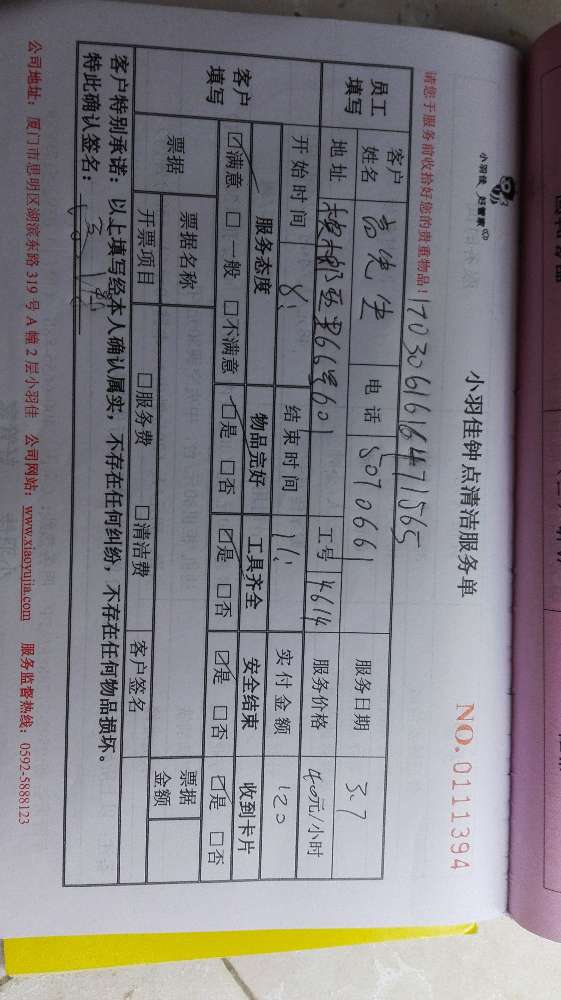 小羽佳 好管家
小羽佳钟点清洁服务单
NO. 0111394
请您于服务前收拾好您的贵重物品!
1703061616471565
员工填写 客户姓名 高先生 电话 5070661 服务日期 3.7
地址 66号601 工号 14614 服务价格 40元/小时
开始时间 8: 结束时间 11: 实付金额 120
客户填写 服务态度 物品完好 工具齐全 安全结束 收到卡片
☑满意 □一般 □不满意 ☑是 □否 ☑是 □否 ☑是 □否 ☑是 □否
票据 票据名称 票据金额
开票项目 □服务费 □清洁费 客户签名
客户特别承诺:以上填写经本人确认属实,不存在任何纠纷,不存在任何物品损坏。
特此确认签名:
公司地址:厦门市思明区湖滨东路 319 号 A 幢 2 层小羽佳 公司网站:www.xiaoyujia.com 服务监督热线:0592-5888123